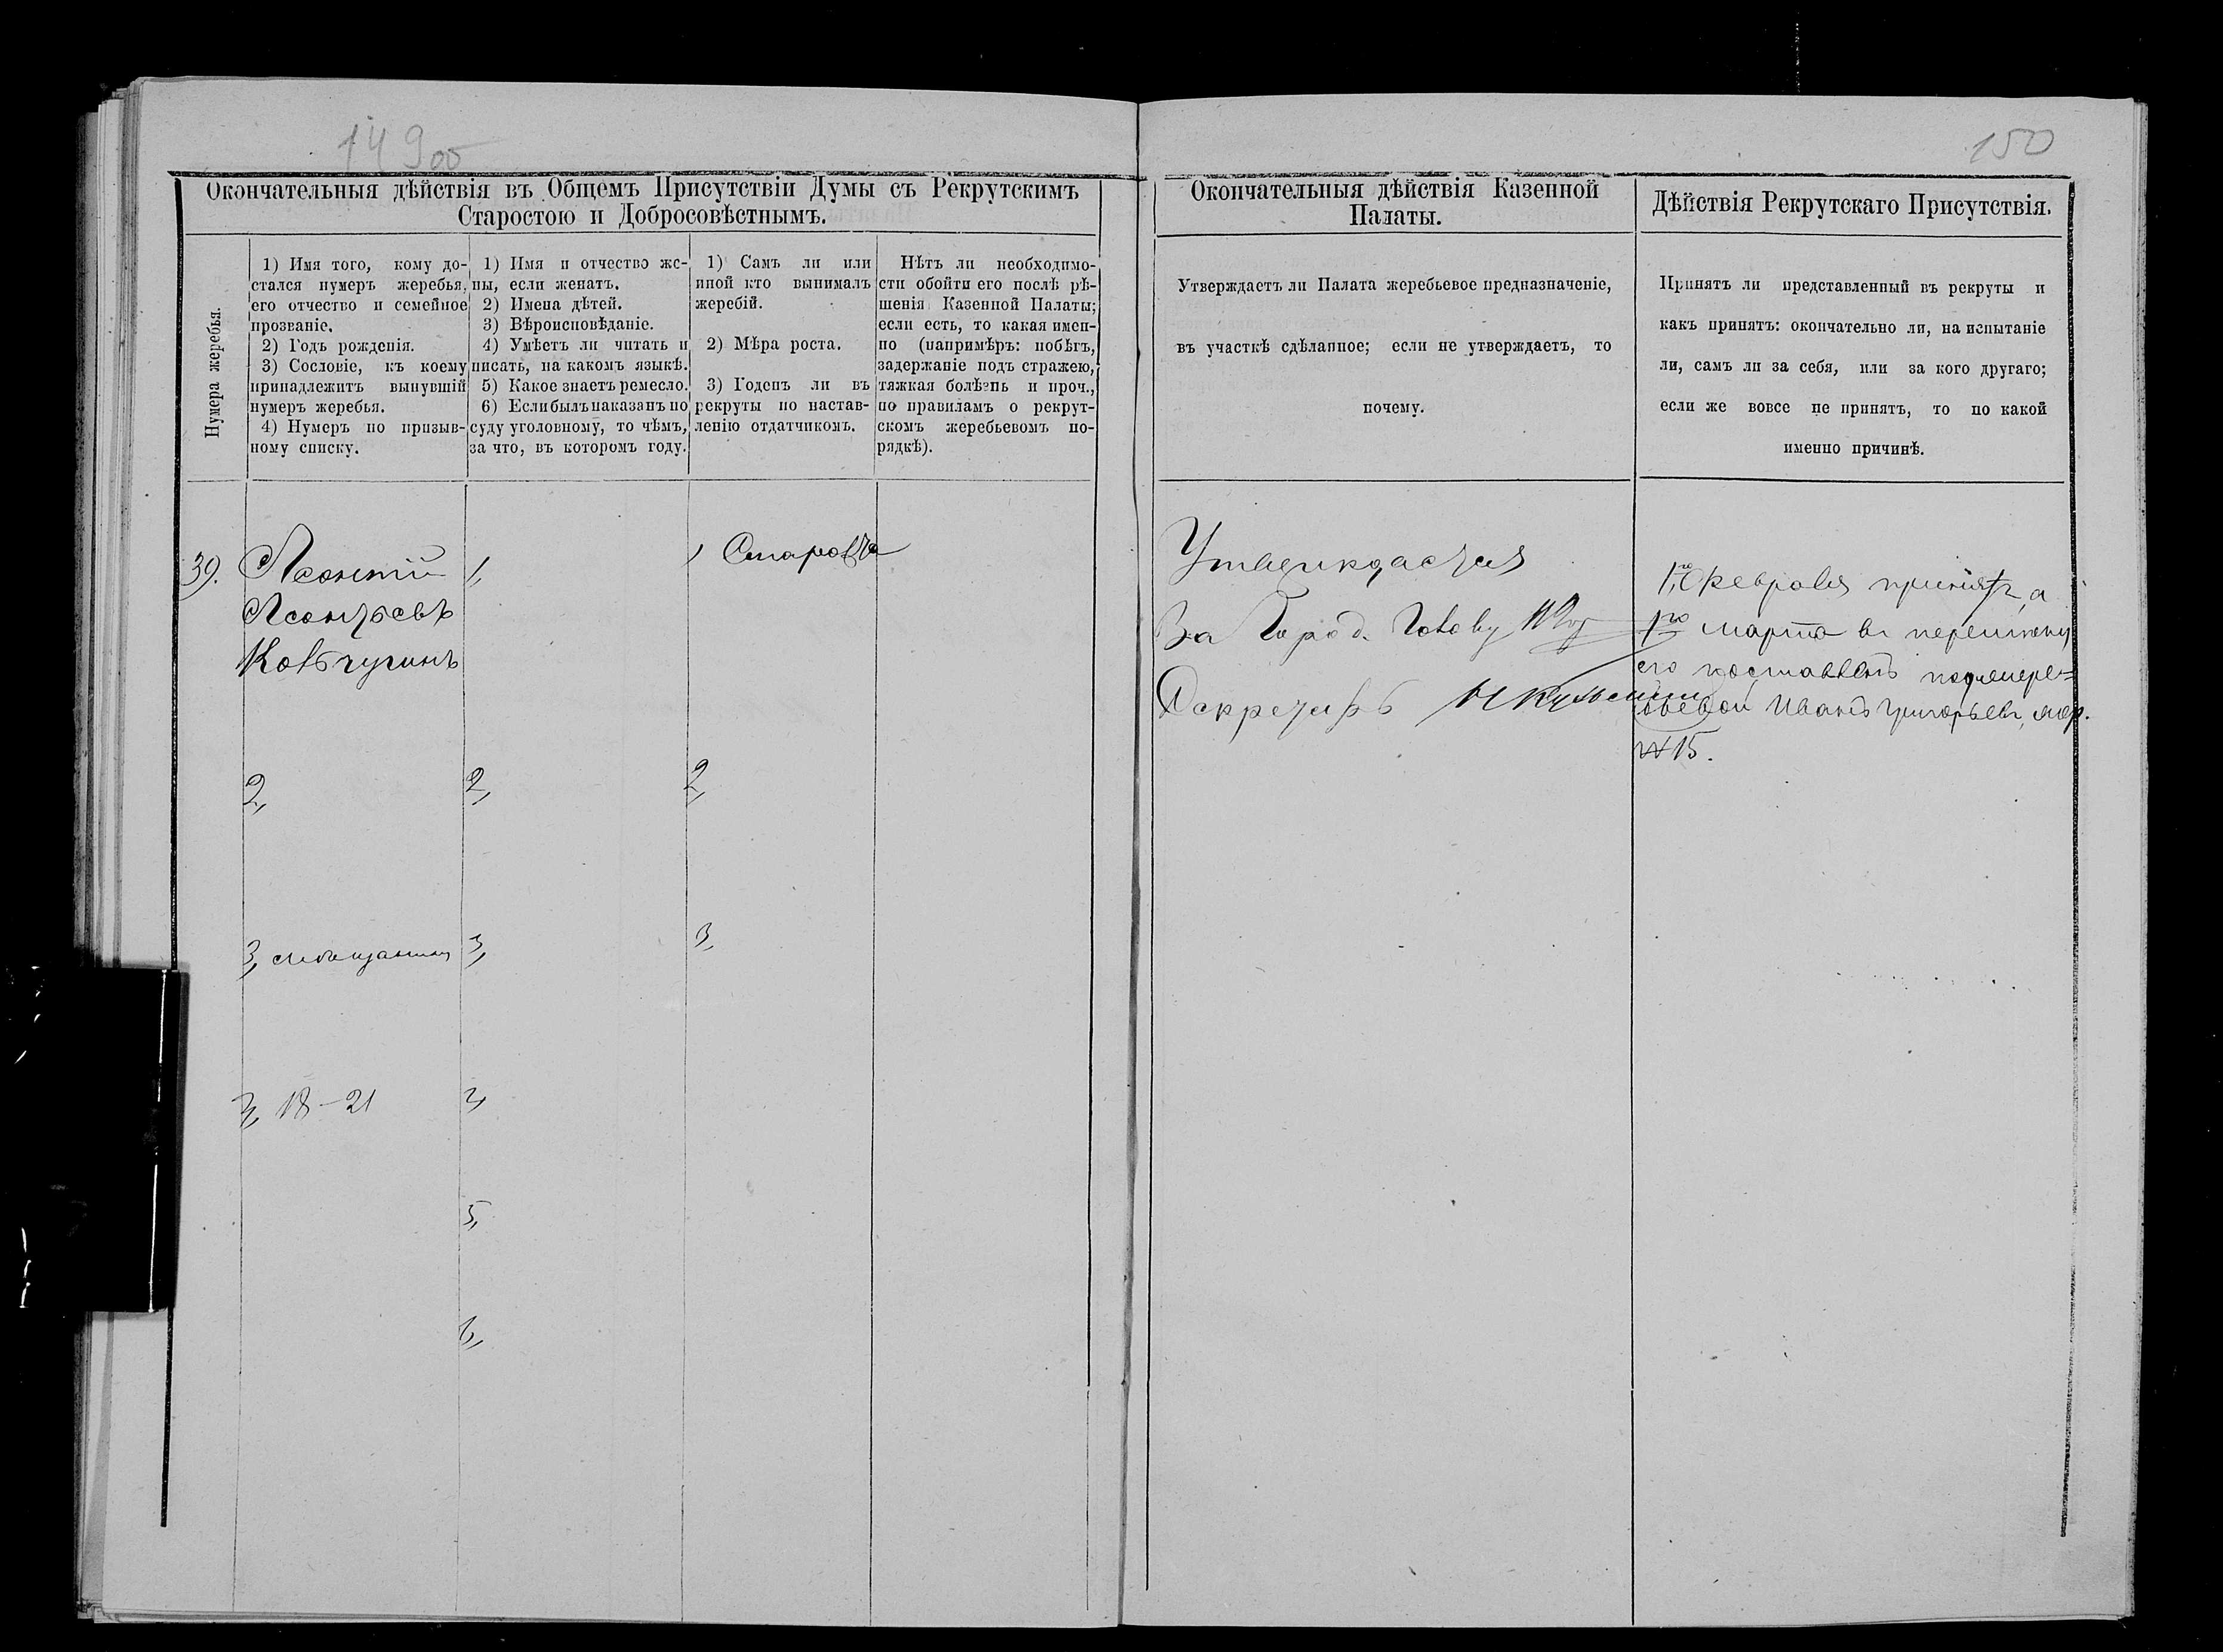 149об
150
Окончательныя дѣйствія въ Общемъ Присутствіи Думы съ Рекрутскимъ
Старостою и Добросовѣстнымъ.
Нумера жеребья.
1) Имя того, кому до-
стался нумеръ жеребья,
его отчество и семейное
прозваніе.
2) Годъ рожденія.
3) Сословіе, къ коему
принадлежитъ вынувшій
нумеръ жеребья.
4) Нумеръ по призыв-
ному списку.
1) Имя и отчество же-
ны, если женатъ.
2) Имена дѣтей.
3) Вѣроисповѣданіе.
4) Умѣетъ ли читать и
писать, на какомъ языкѣ.
5) Какое знаетъ ремесло.
6) Если былъ наказанъ по
суду уголовному, то чѣмъ,
за что, въ которомъ году.
1) Самъ ли или
иной кто вынималъ
жеребій.
2) Мѣра роста.
3) Годенъ ли въ
рекруты по настав-
ленію отдатчикомъ.
Нѣтъ ли необходимо-
сти обойти его послѣ рѣ-
шенія Казенной Палаты;
если есть, то какая имен-
но (напримѣръ: побѣгъ,
задержаніе подъ стражею,
тяжкая болѣзнь и проч.,
по правиламъ о рекрут-
скомъ жеребьевомъ по-
рядкѣ).
39.
Леонтій
Леонтьевъ
Кольчугинъ
2,
3, мѣщанинъ
3, 18-21
1,
2,
3,
3,
5,
6,
1 Староста
2,
3,
Окончательныя дѣйствія Казенной
Палаты.
Утверждаетъ ли Палата жеребьевое предназначеніе,
въ участкѣ сдѣланное; если не утверждаетъ, то
почему.
Утверждается
За Город. Голову
Секретарь
Дѣйствія Рекрутскаго Присутствія.
Принятъ ли представленный въ рекруты и
какъ принятъ: окончательно ли, на испытаніе
ли, самъ ли за себя, или за кого другаго;
если же вовсе не принятъ, то по какой
именно причинѣ.
Февраля принятъ, а
1го марта въ перемѣну
его поставленъ
Иванъ Григорьевъ
№ 15.